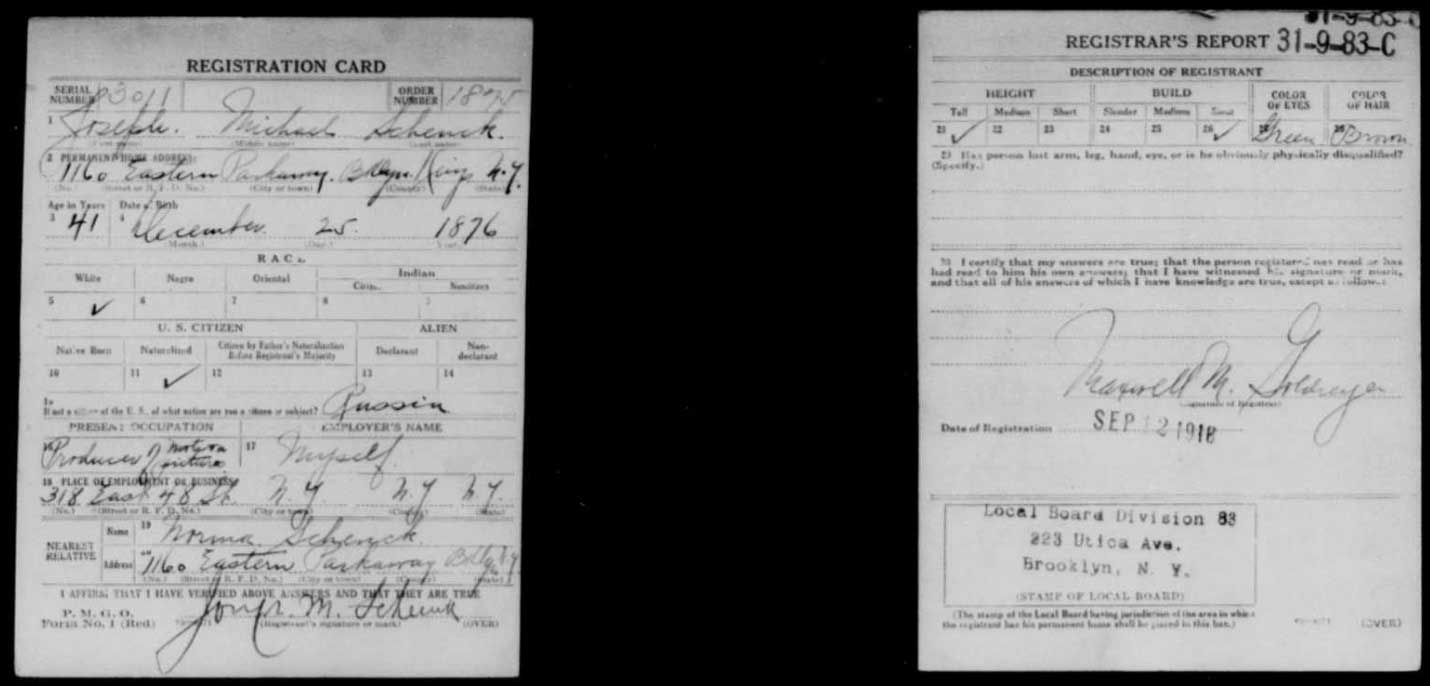 REGISTRATION CARD
SERIAL NUMBER 3011 ORDER NUMBER 1875
1 Joseph. Michael Schenck.
(First name) (Middle name) (Last name)
2 PERMANENT HOME ADDRESS:
1160 Eastern Parkaway. Bklyn. Kings N.Y.
(No.) (Street or R. F. D. No.) (City or town) (County) (State)
Age in Years Date of Birth
3 41 4 December. 25. 1876
(Month.) (Day.) (Year.)
RACE
White Negro Oriental Indian
Citizen Noncitizen
5 ✓ 6 7 8 9
U. S. CITIZEN ALIEN
Native Born Naturalized Citizen by Father's Naturalization Before Registrant's Majority Declarant Non-declarant
10 11 ✓ 12 13 14
15 If not a citizen of the U. S., of what nation are you a citizen or subject? Russia
PRESENT OCCUPATION EMPLOYER'S NAME
16 Producer of motion pictures 17 Myself.
18 PLACE OF EMPLOYMENT OR BUSINESS:
318 East 48 St. N.Y. N.Y. N.Y.
(No.) (Street or R. F. D. No.) (City or town) (County) (State)
NEAREST RELATIVE Name 19 Norma Schenck.
Address 20 1160 Eastern Parkaway Bklyn N.Y.
(No.) (Street or R. F. D. No.) (City or town) (County) (State)
I AFFIRM THAT I HAVE VERIFIED ABOVE ANSWERS AND THAT THEY ARE TRUE
P. M. G. O.
Form No. 1 (Red) Joseph. M. Schenck
(Registrant's signature or mark) (OVER)
REGISTRAR'S REPORT 31-9-83-C
DESCRIPTION OF REGISTRANT
HEIGHT BUILD COLOR OF EYES COLOR OF HAIR
Tall Medium Short Slender Medium Stout
21 ✓ 22 23 24 25 26 ✓ 27 Green 28 Brown
29 Has person lost arm, leg, hand, eye, or is he obviously physically disqualified?
(Specify.)
30 I certify that my answers are true; that the person registered has read or has
had read to him his own answers; that I have witnessed his signature or mark,
and that all of his answers of which I have knowledge are true, except as follows:
Maxwell M.
(Signature of Registrar)
Date of Registration SEP 12 1918
Local Board Division 83
223 Utica Ave.
Brooklyn, N. Y.
(STAMP OF LOCAL BOARD)
(The stamp of the Local Board having jurisdiction of the area in which
the registrant has his permanent home shall be placed in this box.)
(OVER)